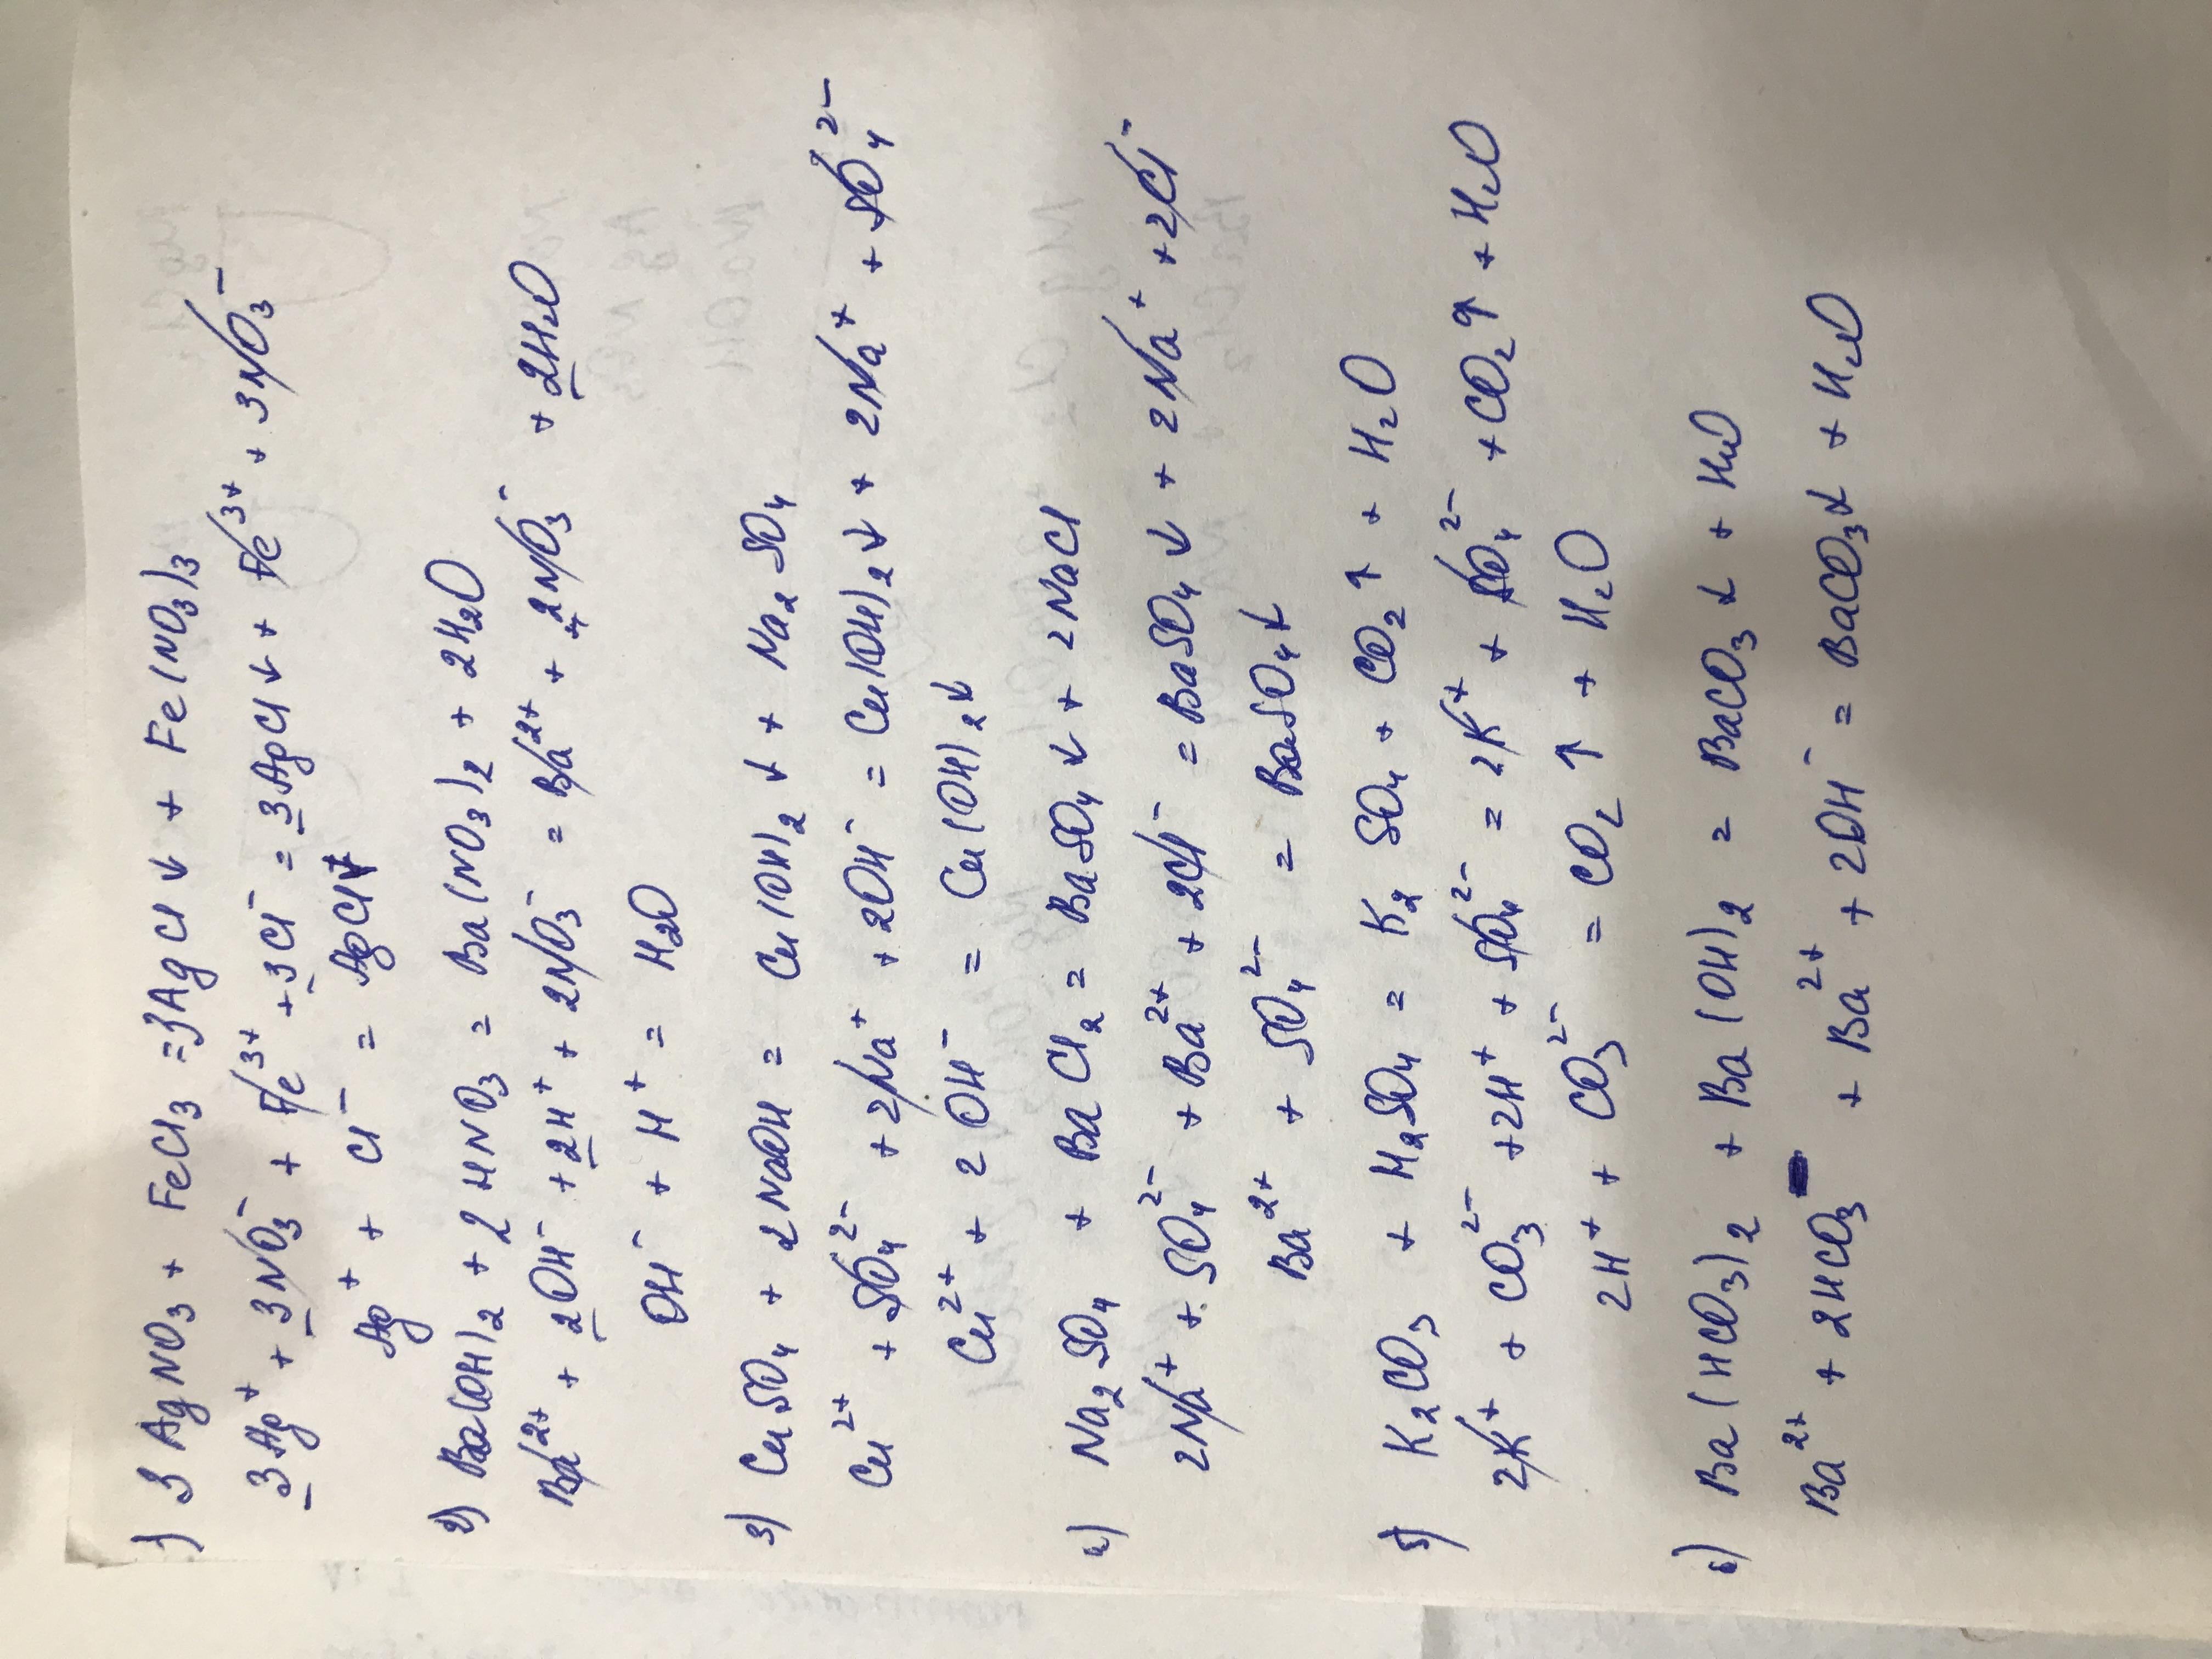 1) 3AgNO₃ + FeCl₃ =3AgCl↓ + Fe(NO₃)₃
3Ag⁺ + 3NO₃⁻ + Fe³⁺ + 3Cl⁻ = 3AgCl↓ + Fe³⁺ + 3NO₃⁻
Ag⁺ + Cl⁻ = AgCl↓
2) Ba(OH)₂ + 2HNO₃ = Ba(NO₃)₂ + 2H₂O
Ba²⁺ + 2OH⁻ + 2H⁺ + 2NO₃⁻ = Ba²⁺ + 2NO₃⁻ + 2H₂O
OH⁻ + H⁺ = H₂O
3) CuSO₄ + 2NaOH = Cu(OH)₂↓ + Na₂SO₄
Cu²⁺ + SO₄²⁻ + 2Na⁺ + 2OH⁻ = Cu(OH)₂↓ + 2Na⁺ + SO₄²⁻
Cu²⁺ + 2OH⁻ = Cu(OH)₂↓
4) Na₂SO₄ + BaCl₂ = BaSO₄↓ + 2NaCl
2Na⁺ + SO₄²⁻ + Ba²⁺ + 2Cl⁻ = BaSO₄↓ + 2Na⁺ + 2Cl⁻
Ba²⁺ + SO₄²⁻ = BaSO₄↓
5) K₂CO₃ + H₂SO₄ = K₂SO₄ + CO₂↑ + H₂O
2K⁺ + CO₃²⁻ + 2H⁺ + SO₄²⁻ = 2K⁺ + SO₄²⁻ + CO₂↑ + H₂O
2H⁺ + CO₃²⁻ = CO₂↑ + H₂O
6) Ba(HCO₃)₂ + Ba(OH)₂ = BaCO₃↓ + H₂O
Ba²⁺ + 2HCO₃⁻ + Ba²⁺ + 2OH⁻ = BaCO₃↓ + H₂O